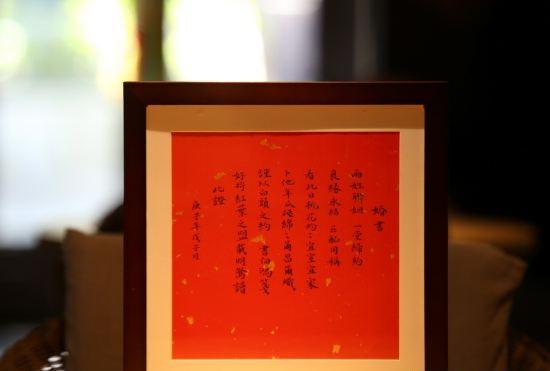 婚書
兩姓聯姻 一堂締約
良緣永結 匹配同稱
看此日桃花灼灼宜室宜家
卜他年瓜瓞綿綿爾昌爾熾
謹以白頭之約 書向鴻箋
好將紅葉之盟載明鴛譜
此證
庚子年戊子月